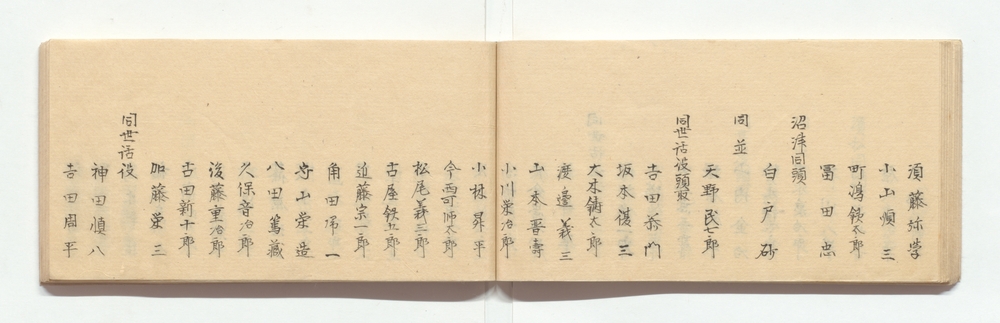 須藤弥学
小山順三
町鴻鉄太郎
冨田忠
沼津同頭
白戸砂
同並
天野民七郎
同世話役頭取
吉田恭門
坂本儀三
大木鋳太郎
渡邉義三
山本晋壽
小川栄治郎
小林昇平
今西可師太郎
松尾義三郎
古屋鉄五郎
近藤宗一郎
角田帰一
守山栄造
八田篤蔵
久保音治郎
後藤重治郎
古田新十郎
加藤栄三
同世話役
神田順八
吉田周平